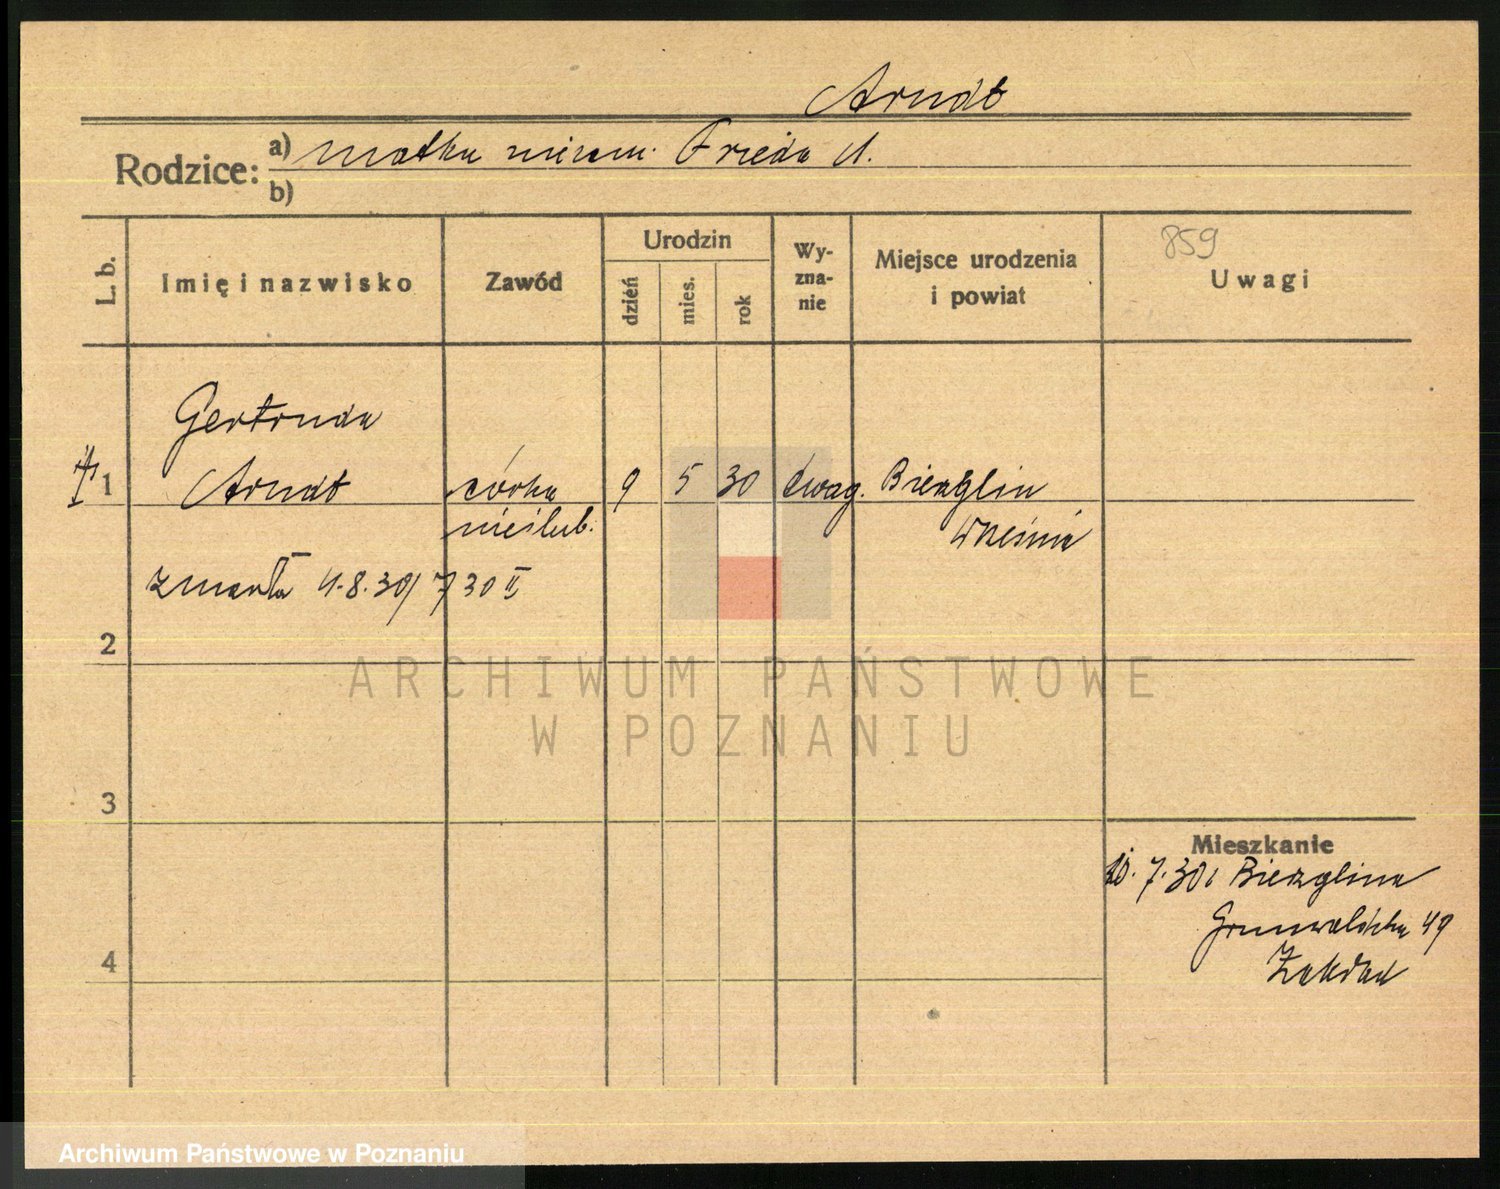 Arndt
Rodzice: a) matka niezam. Frieda A.
b)
859
L. b.
Imię i nazwisko
Zawód
Urodzin
dzień
mies.
rok
Wy-
zna-
nie
Miejsce urodzenia
i powiat
Uwagi
Gertruda
1 Arndt córka 9 5 30 ewag. Bierzglin
nieślub. Września
zmarła 4.8.30/730 II
2
3
4
ARCHIWUM PAŃSTWOWE
W POZNANIU
Mieszkanie
7.30 Bierzglina
Grunwaldzka 49
Zakład
Archiwum Państwowe w Poznaniu